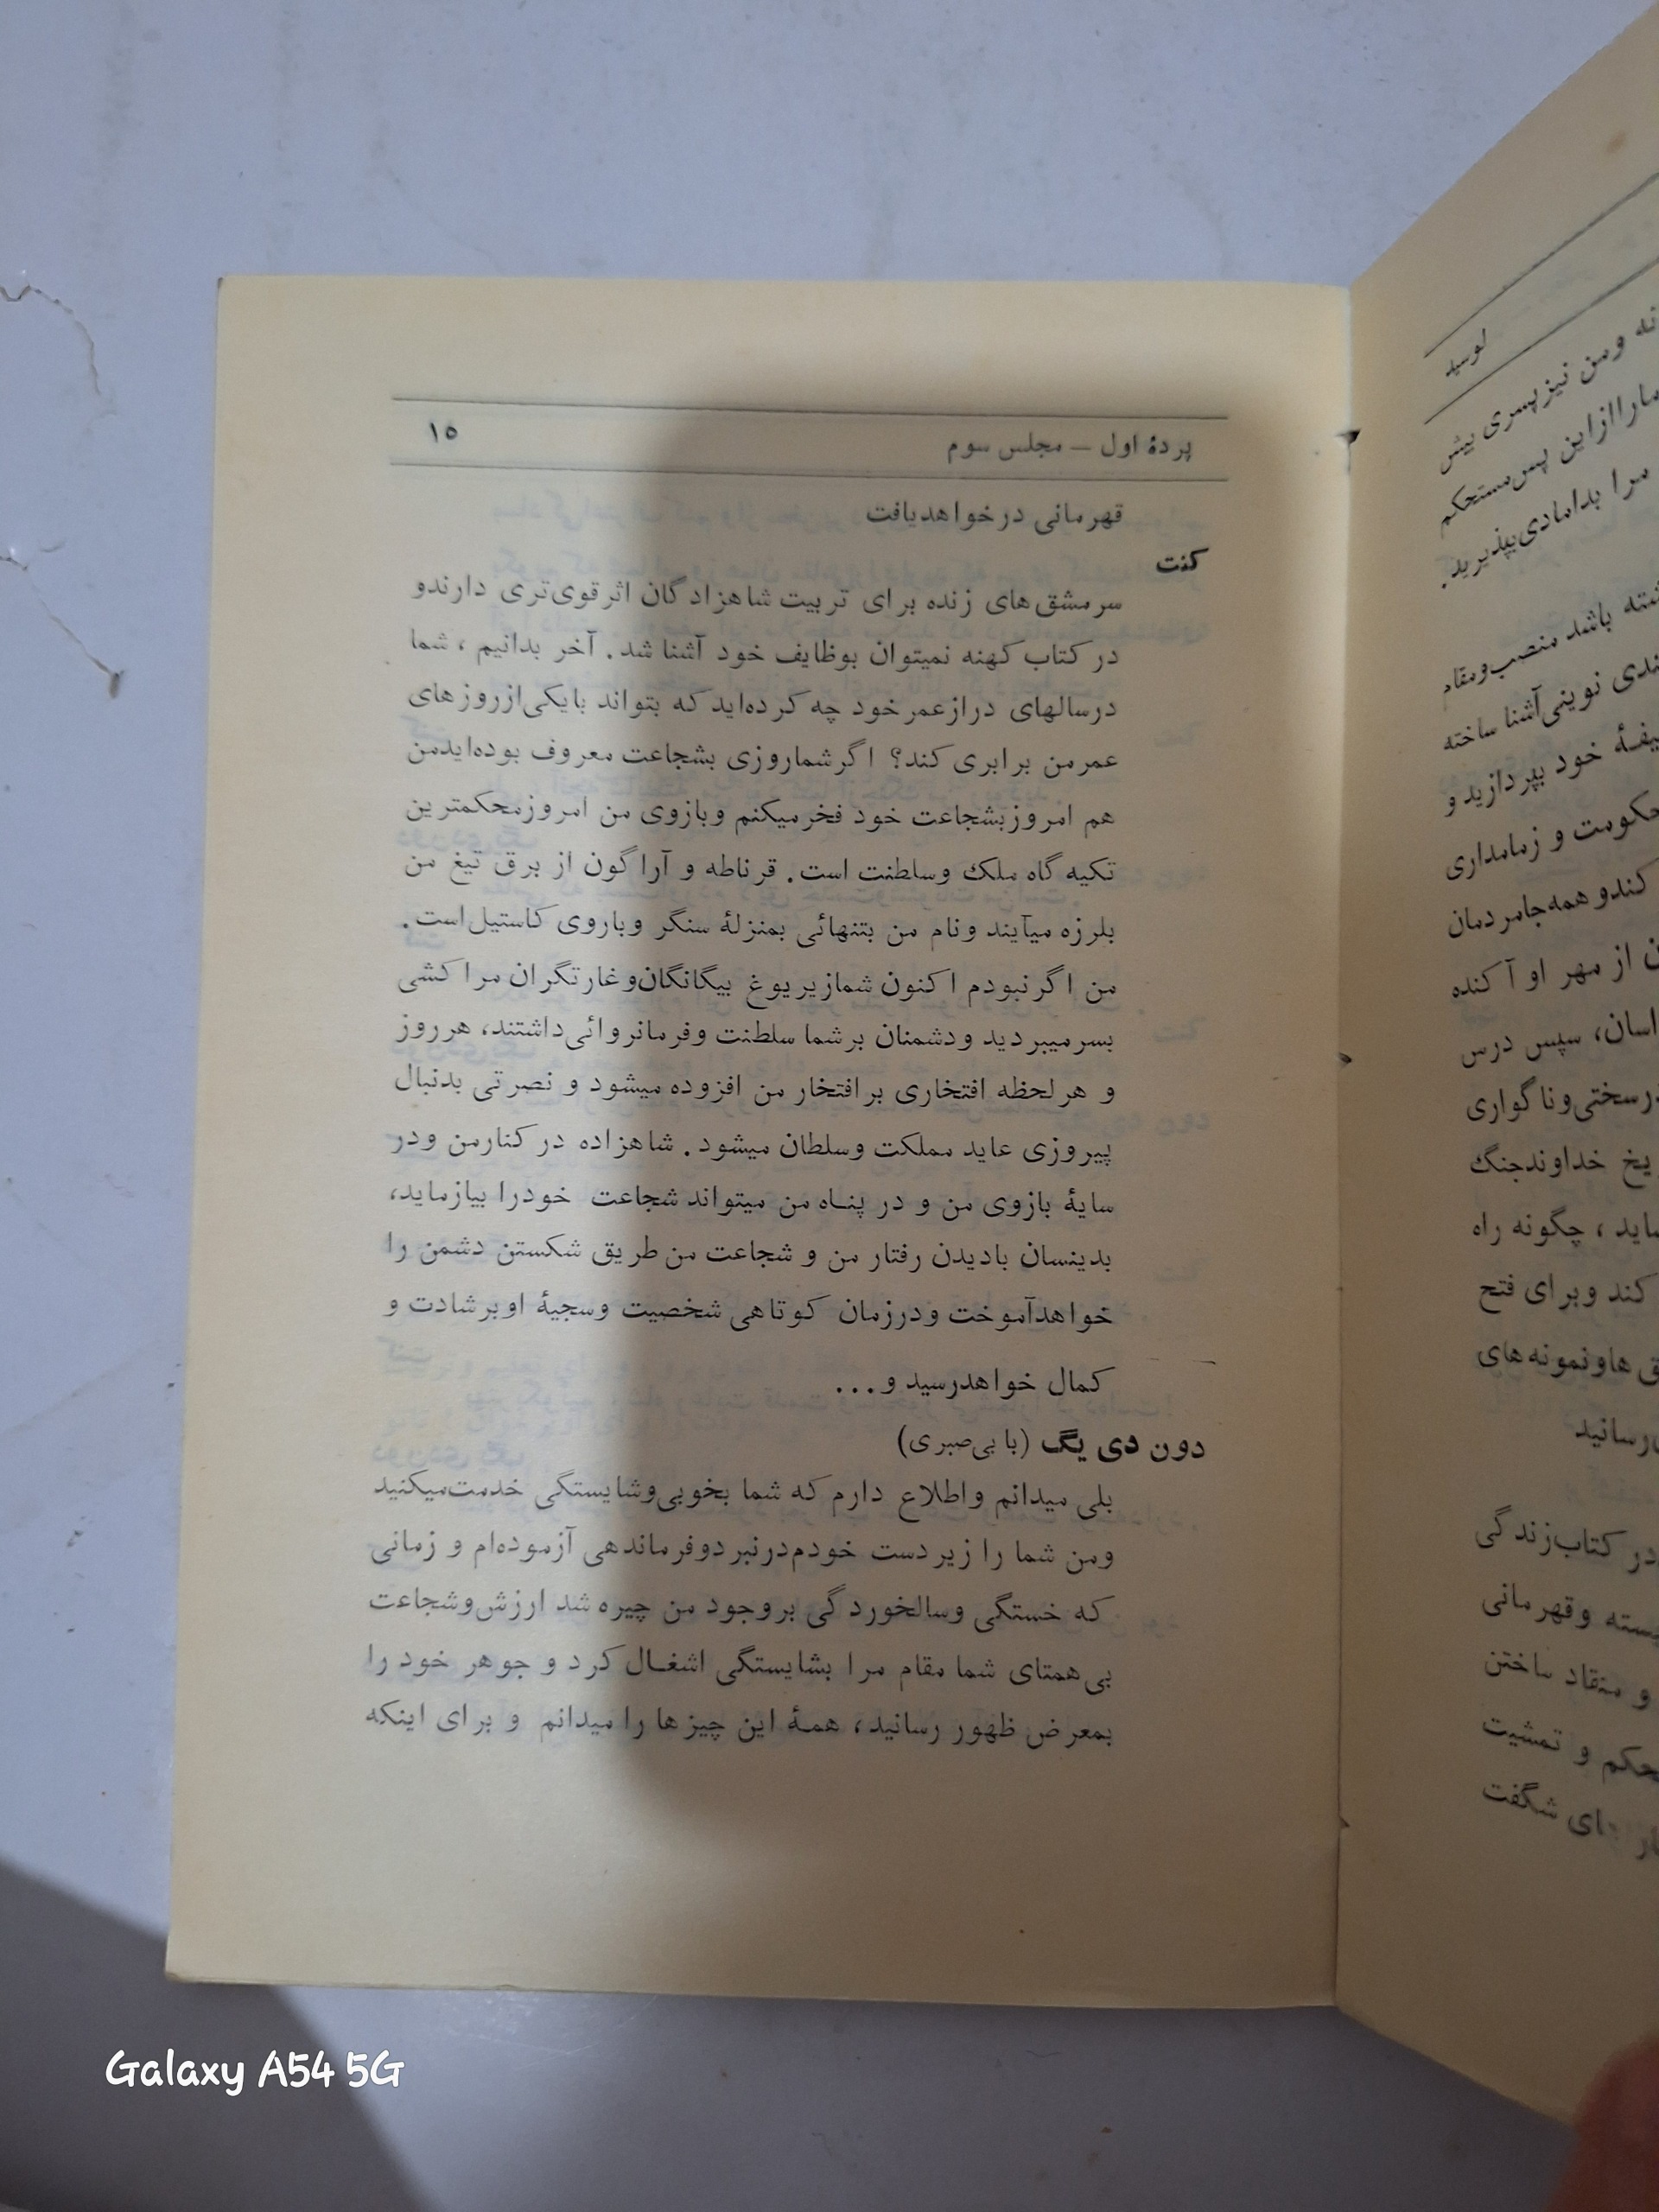 پردهٔ اول – مجلس سوم ۱۵
قهرمانی درخواهدیافت
کنت
سرمشق‌های زنده برای تربیت شاهزادگان اثرقوی‌تری دارندو
در کتاب کهنه نمیتوان بوظایف خود آشنا شد. آخر بدانیم ، شما
درسالهای درازعمرخود چه کرده‌اید که بتواند بایکی‌ازروزهای
عمرمن برابری کند؟ اگرشماروزی بشجاعت معروف بوده‌ایدمن
هم امروزبشجاعت خود فخرمیکنم وبازوی من امروزمحکمترین
تکیه گاه ملک وسلطنت است. قرناطه و آراگون از برق تیغ من
بلرزه میآیند ونام من بتنهائی بمنزلهٔ سنگر وباروی کاستیل‌است.
من اگرنبودم اکنون شمازیریوغ بیگانگان‌وغارتگران مراکشی
بسرمیبردید ودشمنان برشما سلطنت وفرمانروائی‌داشتند، هرروز
و هرلحظه افتخاری برافتخار من افزوده میشود و نصرتی بدنبال
پیروزی عاید مملکت وسلطان میشود. شاهزاده در کنارمن ودر
سایهٔ بازوی من و در پنـاه من میتواند شجاعت خودرا بیازماید،
بدینسان بادیدن رفتار من و شجاعت من طریق شکستن دشمن را
خواهدآموخت ودرزمان کوتاهی شخصیت وسجیهٔ اوبرشادت و
کمال خواهدرسید و...
دون دی یگ (با بی‌صبری)
بلی میدانم واطلاع دارم که شما بخوبی‌وشایستگی خدمت‌میکنید
ومن شما را زیردست خودم‌درنبردوفرماندهی آزموده‌ام و زمانی
که خستگی وسالخوردگی بروجود من چیره شد ارزش‌وشجاعت
بی‌همتای شما مقام مرا بشایستگی اشغـال کرد و جوهر خود را
بمعرض ظهور رسانید، همـهٔ این چیزها را میدانم و برای اینکه
لوسید
ومن نیزپسری بیش
ازاین پس‌مستحکم
مرا بدامادی‌بپذیرید.
باشد منصب‌ومقام
نوینی‌آشنا ساخته
خود بپردازید و
حکومت و زمامداری
کندو همه‌جامردمان
از مهر او آکنده
سپس درس
درسختی‌وناگواری
خداوندجنگ
، چگونه راه
کند وبرای فتح
هاونمونه‌های
در کتاب‌زندگی
وقهرمانی
و منقاد ساختن
و تمشیت
شگفت
Galaxy A54 5G